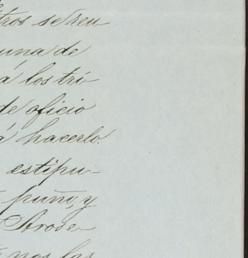 tros se reu
una de
á los tri
de oficio
á hacerlo.
estipu-
puño, y
Arose
nos los